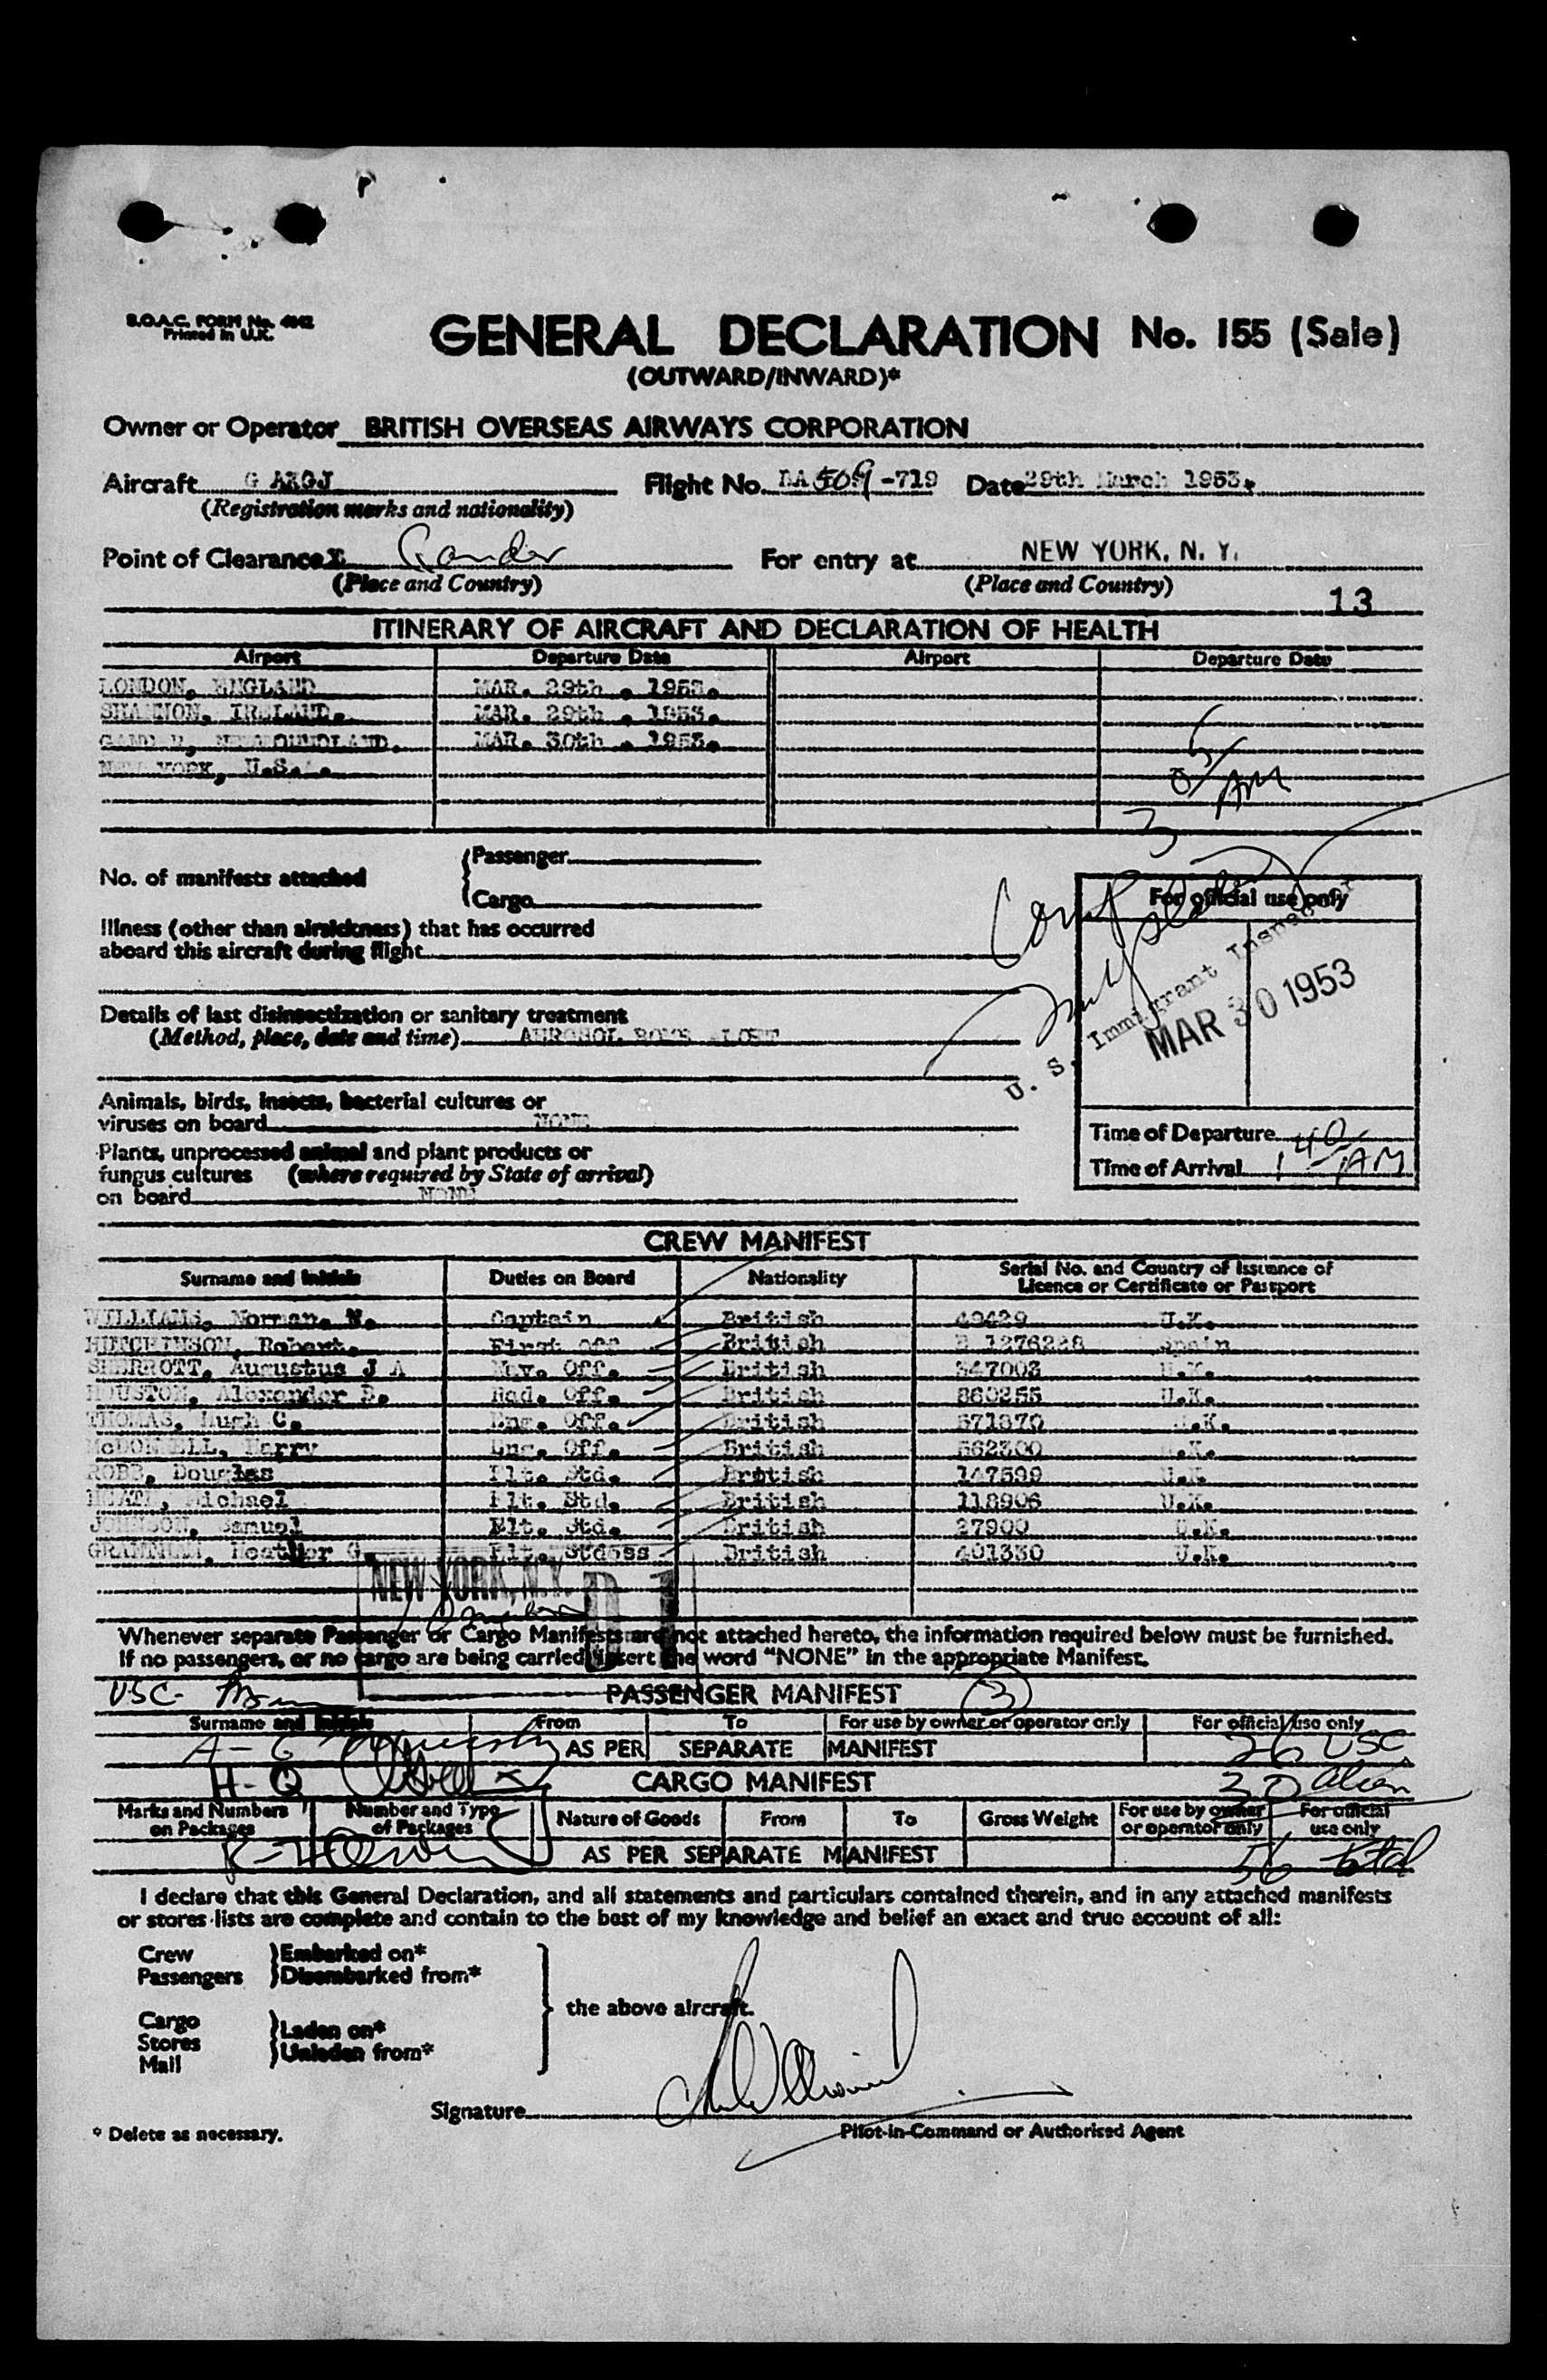 B.O.A.C. FORM No. 4042
Printed in U.K.
GENERAL DECLARATION No. 155 (Sale)
(OUTWARD/INWARD)*
Owner or Operator BRITISH OVERSEAS AIRWAYS CORPORATION
Aircraft G AKGJ Flight No. BA 509-719 Date 29th March 1953.
(Registration marks and nationality)
Point of Clearance Gander For entry at NEW YORK, N. Y.
(Place and Country) (Place and Country) 13
ITINERARY OF AIRCRAFT AND DECLARATION OF HEALTH
Airport Departure Date Airport Departure Date
LONDON, ENGLAND MAR. 29th . 1953.
SHANNON, IRELAND. MAR. 29th . 1953.
GANDER, NEWFOUNDLAND. MAR. 30th . 1953.
NEW YORK, U.S.A.
AM
No. of manifests attached
Passenger
Cargo
For official use only
Illness (other than airsickness) that has occurred
aboard this aircraft during flight
U. S. Immigrant Inspector
MAR 30 1953
Details of last disinsectization or sanitary treatment
(Method, place, date and time) AEROSOL BOMB
Animals, birds, insects, bacterial cultures or
viruses on board NONE
Plants, unprocessed animal and plant products or
fungus cultures (where required by State of arrival)
on board NONE
Time of Departure
Time of Arrival 1 40 AM
CREW MANIFEST
Surname and Initials Duties on Board Nationality Serial No. and Country of Issuance of Licence or Certificate or Passport
WILLIAMS, Norman. N. Captain British 49429 U.K.
HUTCHINSON, Robert. First Off British 1276228 Spain
SHERROTT, Augustus J A Nav. Off. British 347003 U.K.
HOUSTON, Alexander B. Rad. Off. British 860255 U.K.
THOMAS, Hugh C. Eng. Off. British 571870 U.K.
McDONNELL, Harry Eng. Off. British 562300 U.K.
ROBB, Douglas Flt. Std. British 147599 U.K.
HEATH, Michael Flt. Std. British 118906 U.K.
JOHNSON, Samuel Flt. Std. British 27900 U.K.
Heather G. Flt. Stdess British 401330 U.K.
NEW YORK, N.Y.
Whenever separate Passenger or Cargo Manifests are not attached hereto, the information required below must be furnished.
If no passengers, or no cargo are being carried insert the word “NONE” in the appropriate Manifest.
USC- PASSENGER MANIFEST 3
Surname and Initials From To For use by owner or operator only For official use only
AS PER SEPARATE MANIFEST 26 USC
CARGO MANIFEST 30 alien
Marks and Numbers on Packages Number and Type of Packages Nature of Goods From To Gross Weight For use by owner or operator only For official use only
AS PER SEPARATE MANIFEST 56 total
I declare that this General Declaration, and all statements and particulars contained therein, and in any attached manifests
or stores lists are complete and contain to the best of my knowledge and belief an exact and true account of all:
Crew Embarked on*
Passengers Disembarked from*
the above aircraft.
Cargo Laden on*
Stores
Mail Unladen from*
Signature
* Delete as necessary. Pilot-in-Command or Authorised Agent